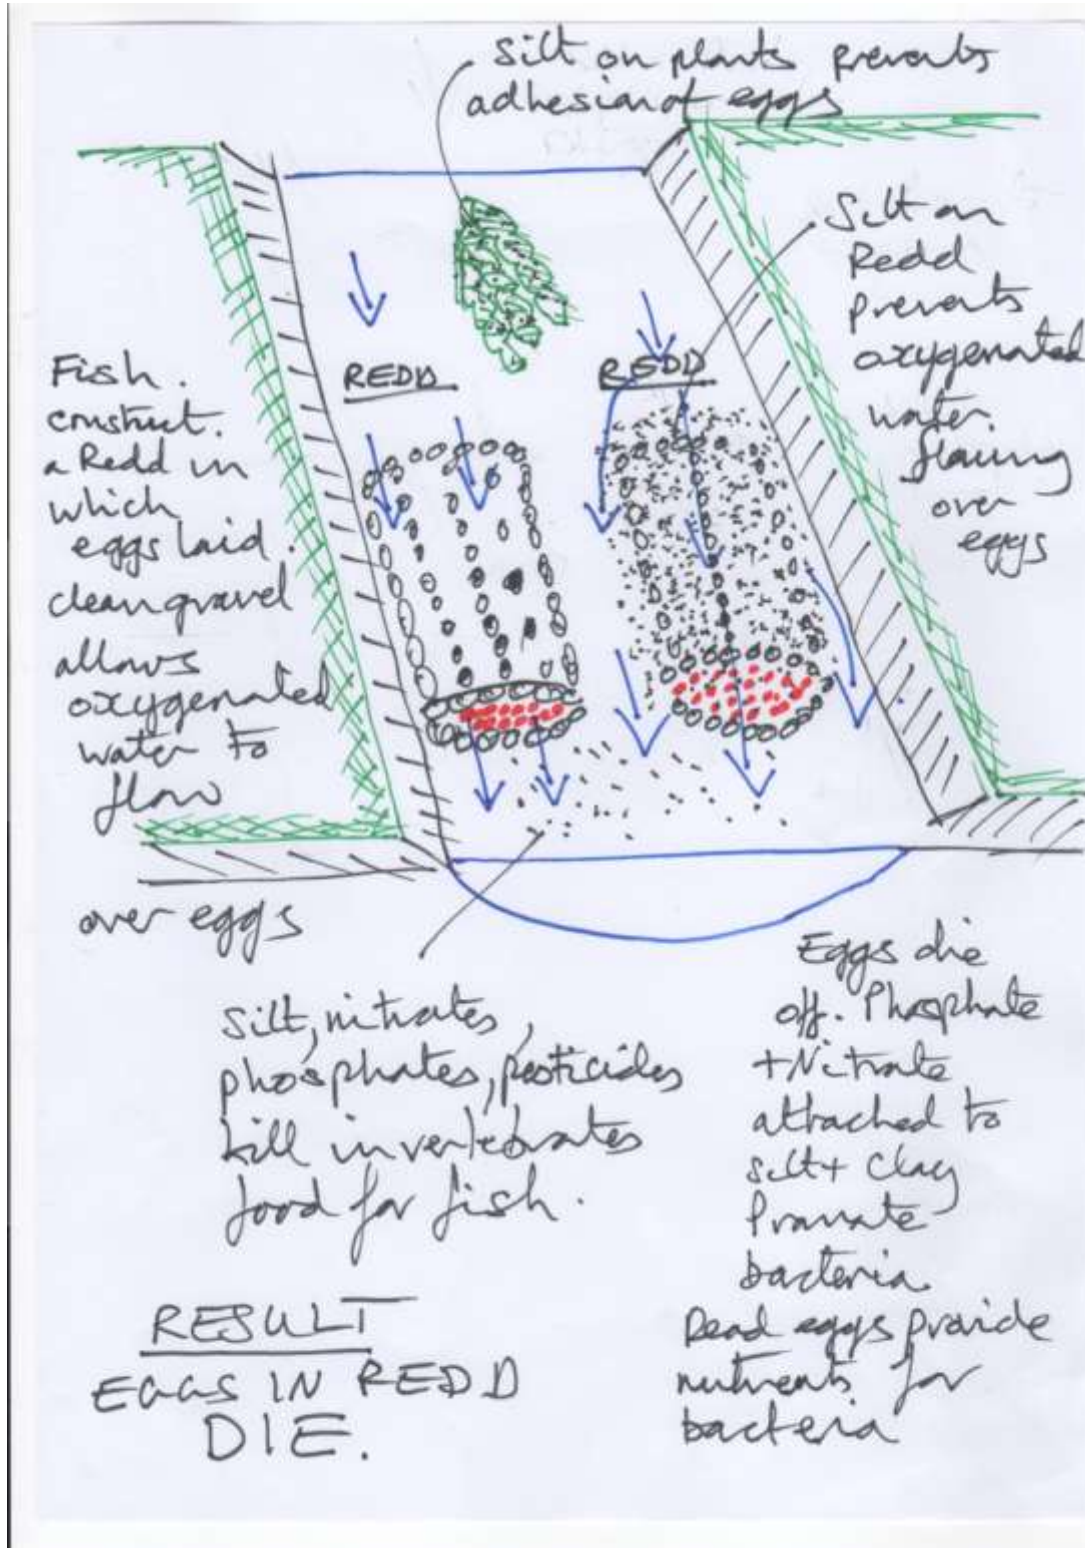 Silt on plants prevents
adhesion of eggs
Silt on
Redd
prevents
oxygenated
water
flowing
over
eggs
REDD
REDD
Fish
construct
a Redd in
which
eggs laid.
clean gravel
allows
oxygenated
water to
flow
over eggs
Silt, nitrates,
phosphates, pesticides
kill invertebrates
food for fish.
Eggs die
off. Phosphate
+ Nitrate
attached to
silt + Clay
Promote
bacteria.
Dead eggs provide
nutrients for
bacteria
RESULT
EGGS IN REDD
DIE.